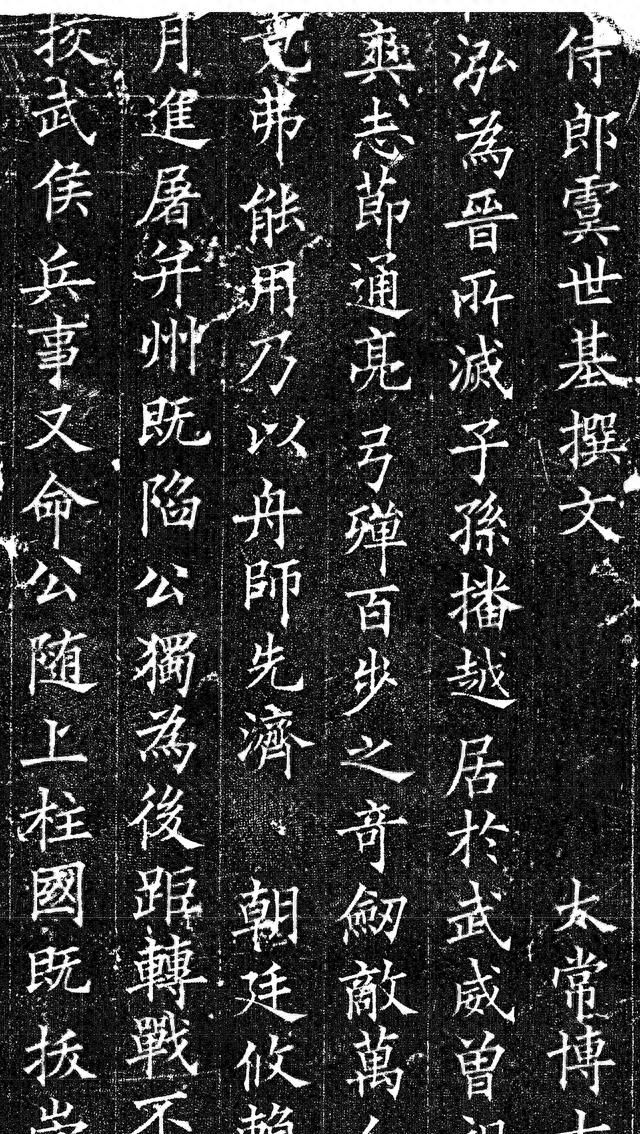 侍郎虞世基撰文 太常博
泓為晉所滅子孫播越居於武威曾祖
爽志節通亮弓殫百步之奇劒敵萬人
克弗能用乃以舟師先濟 朝廷攸賴
月進屠并州既陷公獨為後距轉戰不
授武侯兵事又命公随上柱國既拔